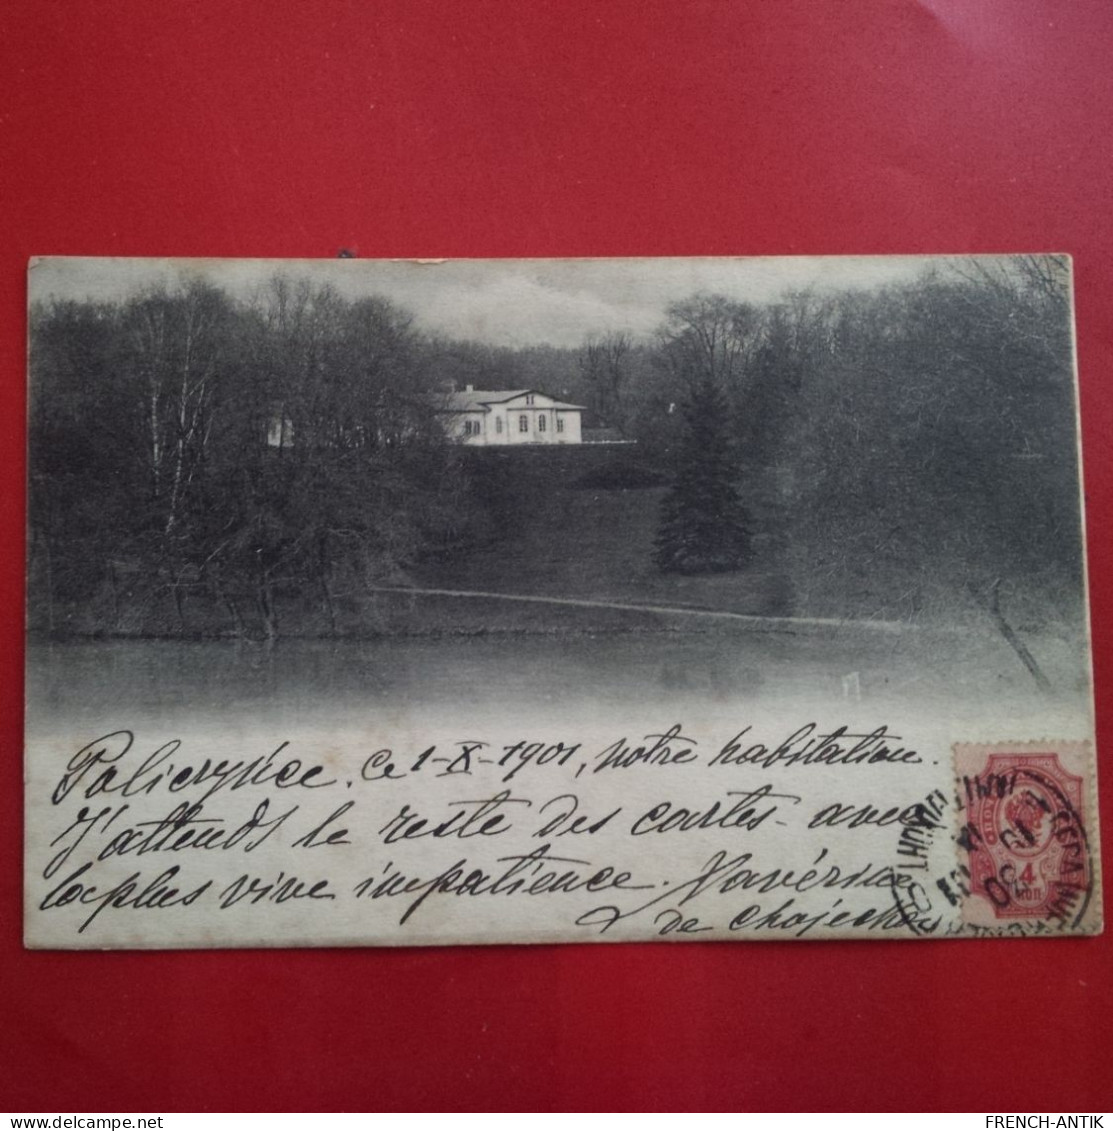 Policzyńce. Ce 1-X-1901, notre habitation.
J'attends le reste des cartes avec
la plus vive impatience. Xavérine
de Chojecka
4
КОП
FRENCH-ANTIK